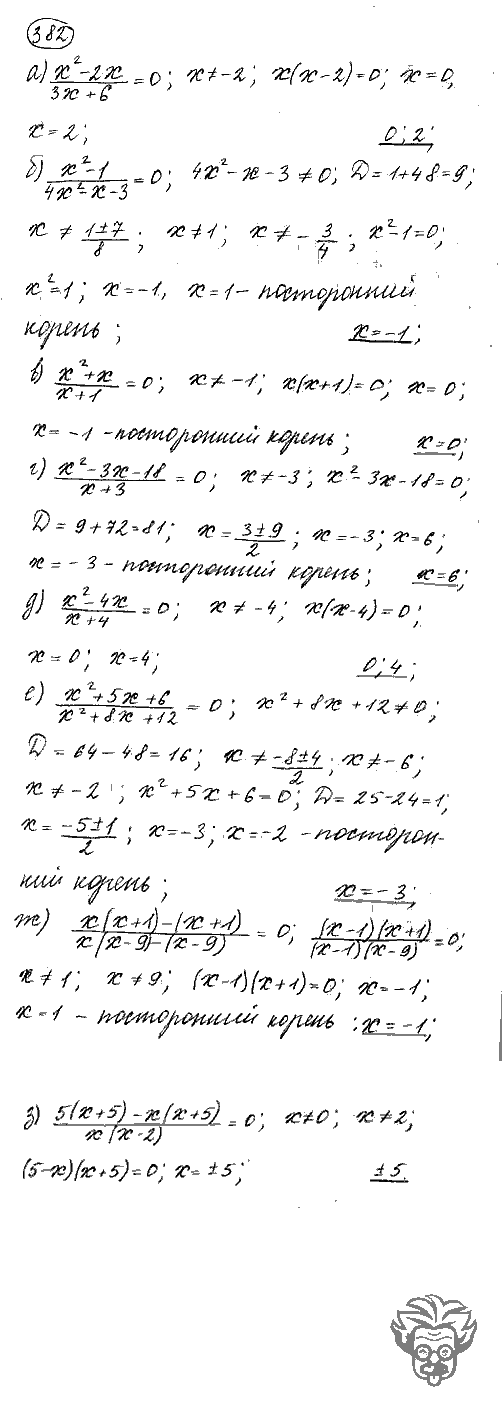 382
а) (x²-2x)/(3x+6) = 0; x ≠ -2; x(x-2)=0; x=0,
x=2; 0; 2;
б) (x²-1)/(4x²-x-3) = 0; 4x²-x-3 ≠ 0; D=1+48=9;
x ≠ (1±7)/8; x≠1; x ≠ -3/4; x²-1=0;
x²=1; x=-1, x=1 - посторонний
корень; x=-1;
в) (x²+x)/(x+1) = 0; x ≠ -1; x(x+1)=0; x=0;
x=-1 - посторонний корень; x=0;
г) (x²-3x-18)/(x+3) = 0; x≠-3; x²-3x-18=0;
D=9+72=81; x=(3±9)/2; x=-3; x=6;
x=-3 - посторонний корень; x=6;
д) (x²-4x)/(x+4) = 0; x ≠ -4; x(x-4)=0;
x=0; x=4; 0; 4;
е) (x²+5x+6)/(x²+8x+12) = 0; x²+8x+12≠0;
D=64-48=16; x ≠ (-8±4)/2; x≠-6;
x ≠ -2; x²+5x+6=0; D=25-24=1;
x=(-5±1)/2; x=-3; x=-2 - посторон-
ний корень; x=-3;
ж) (x(x+1)-(x+1))/(x(x-9)-(x-9)) = 0; ((x-1)(x+1))/((x-1)(x-9)) = 0;
x≠1; x≠9; (x-1)(x+1)=0; x=-1;
x=1 - посторонний корень: x=-1;
з) (5(x+5)-x(x+5))/(x(x-2)) = 0; x≠0; x≠2;
(5-x)(x+5)=0; x=±5; ±5.